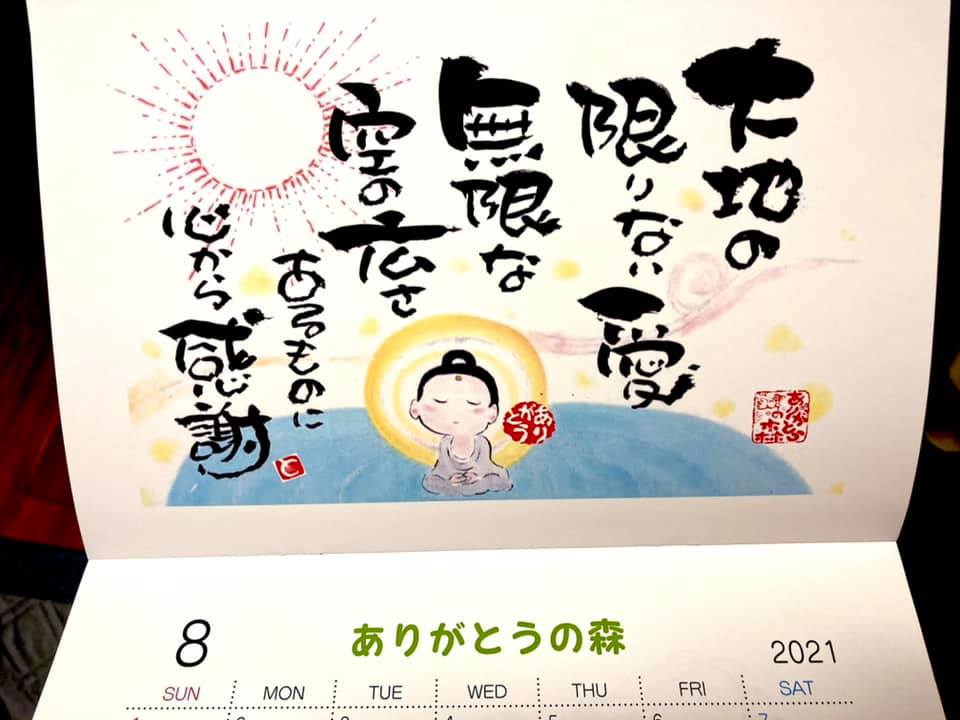 大地の
限りない愛
無限な
空の広さ
あるものに
心から感謝
ありがとう
8
ありがとうの森
2021
SUN MON TUE WED THU FRI SAT